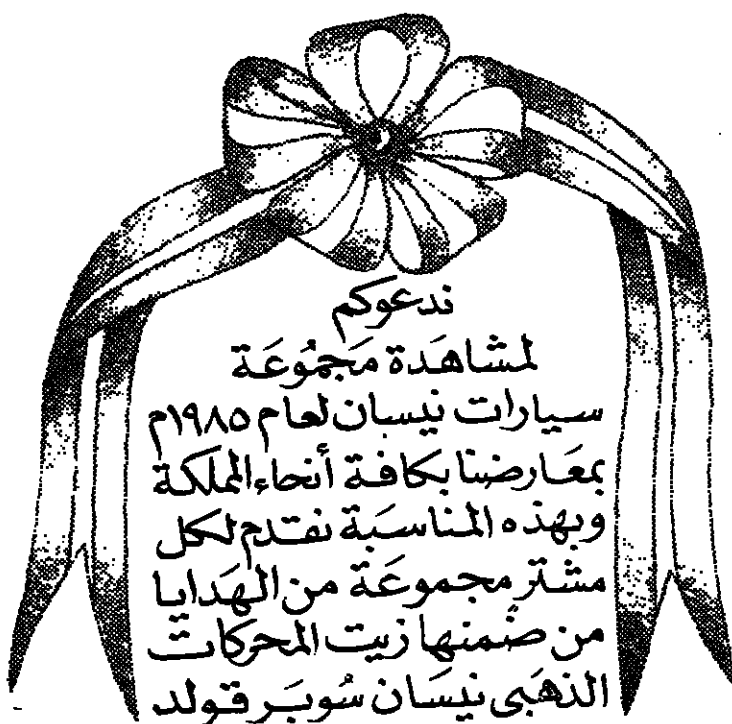 ندعوكم
لمشاهَدة مَجمُوعَة
سيارات نيسان لعام ١٩٨٥م
بمعَارضنا بكافة أنحاء المملكة
وبهذه المناسَبة نقدم لكل
مشترٍ مجموعَة من الهَدايا
من ضمنها زيت المحركات
الذهبى نيسَان سُوبَر قولد